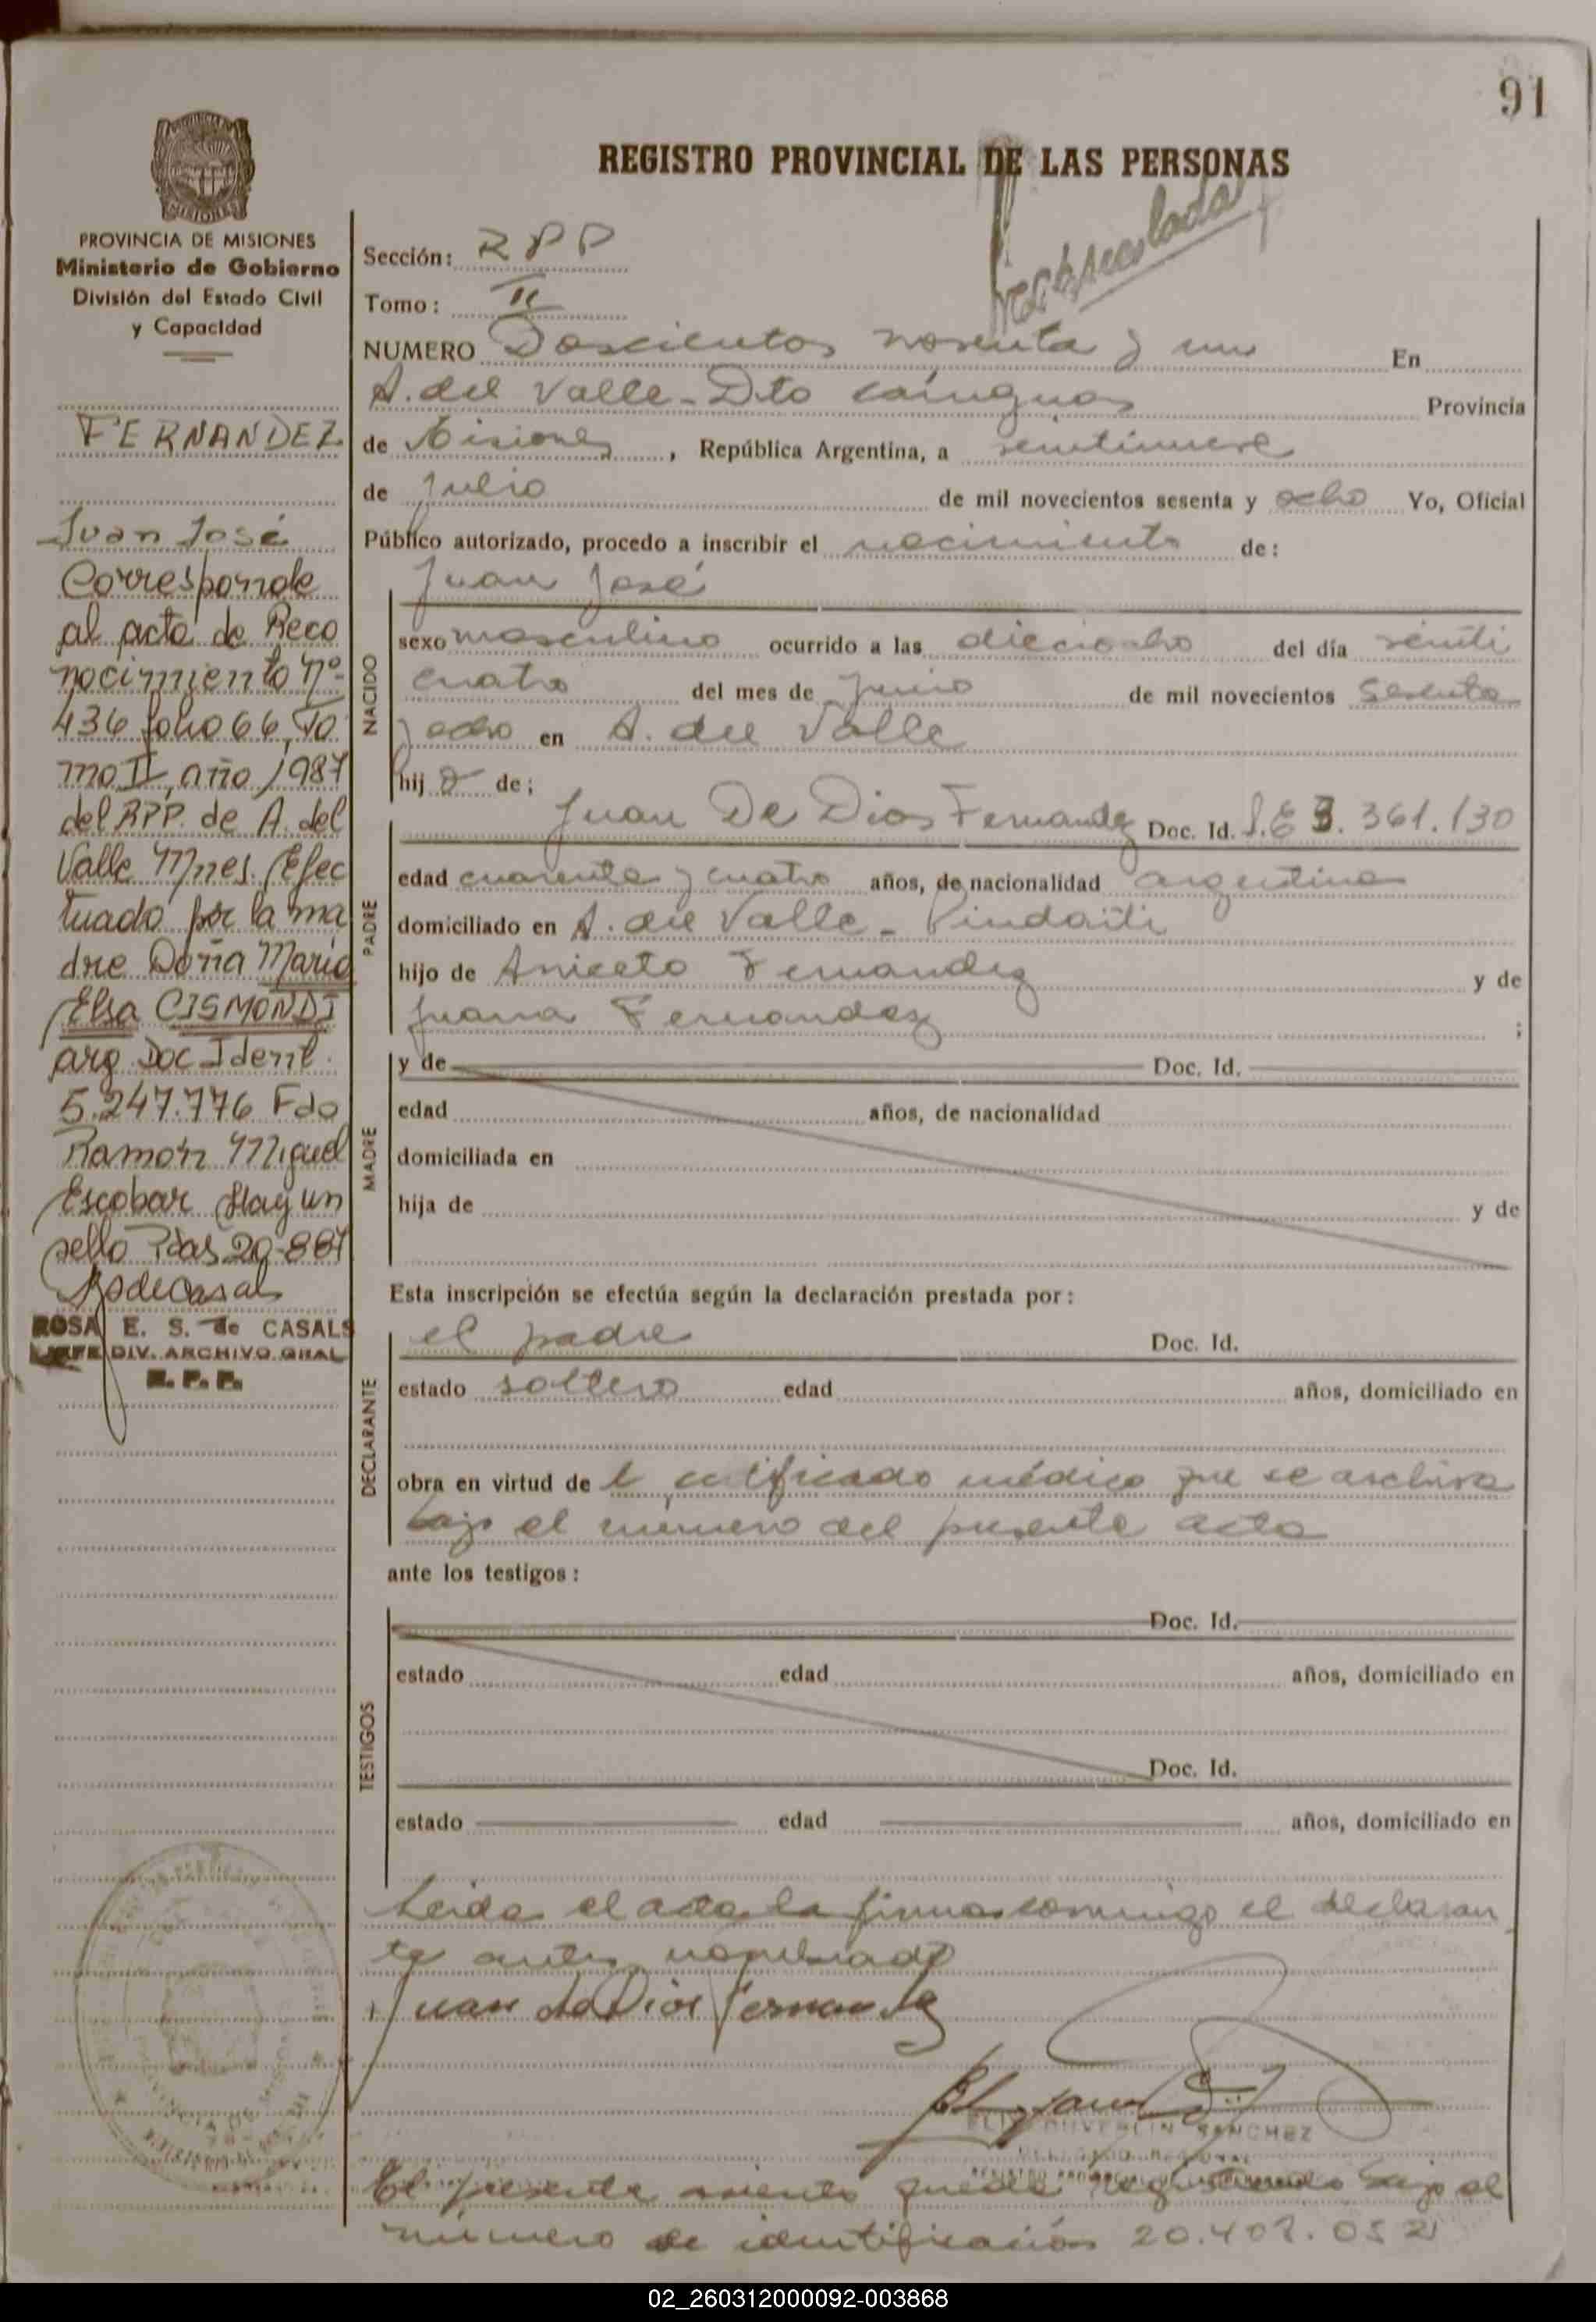 91
REGISTRO PROVINCIAL DE LAS PERSONAS
PROVINCIA DE MISIONES
Ministerio de Gobierno
División del Estado Civil
y Capacidad
FERNANDEZ
Juan José
Corresponde
al acta de Reco
nocimiento Nº
436 folio 66, To
mo II, año 1987
del RPP. de A. del
Valle Mnes. Efec
tuado por la ma
dre Doña Maria
Elsa CISMONDI
arg. Doc Ident.
5.247.776 Fdo
Ramón Miguel
Escobar Hay un
sello Pdas 20-8-87
ROSA E. S. de CASALS
JEFE DIV. ARCHIVO GRAL
R. P. P.
Sección: RPP
Tomo: II
NUMERO Doscientos noventa y un En
A. del Valle - Dto Cainguas Provincia
de Misiones, República Argentina, a veintinueve
de Julio de mil novecientos sesenta y ocho Yo, Oficial
Público autorizado, procedo a inscribir el nacimiento de:
Juan José
NACIDO
sexo masculino ocurrido a las dieciocho del día veinti
cuatro del mes de Junio de mil novecientos sesenta
y ocho en A. del Valle
hijo de;
PADRE
Juan De Dios Fernandez Doc. Id. L.E 3.361.130
edad cuarenta y cuatro años, de nacionalidad argentina
domiciliado en A. del Valle - Pindaiti
hijo de Aniceto Fernandez y de
Juana Fernandez ;
MADRE
y de Doc. Id.
edad años, de nacionalidad
domiciliada en
hija de y de
Esta inscripción se efectúa según la declaración prestada por:
DECLARANTE
el padre Doc. Id.
estado soltero edad años, domiciliado en
obra en virtud de l certificado médico que se archiva
bajo el numero del presente acta
ante los testigos:
TESTIGOS
Doc. Id.
estado edad años, domiciliado en
Doc. Id.
estado edad años, domiciliado en
Leida el acta la firma conmigo el declaran
te antes nombrado
Juan de Dios Fernandez
SANCHEZ
El presente asiento queda registrado bajo el
número de identificación 20.407.052
02_260312000092-003868